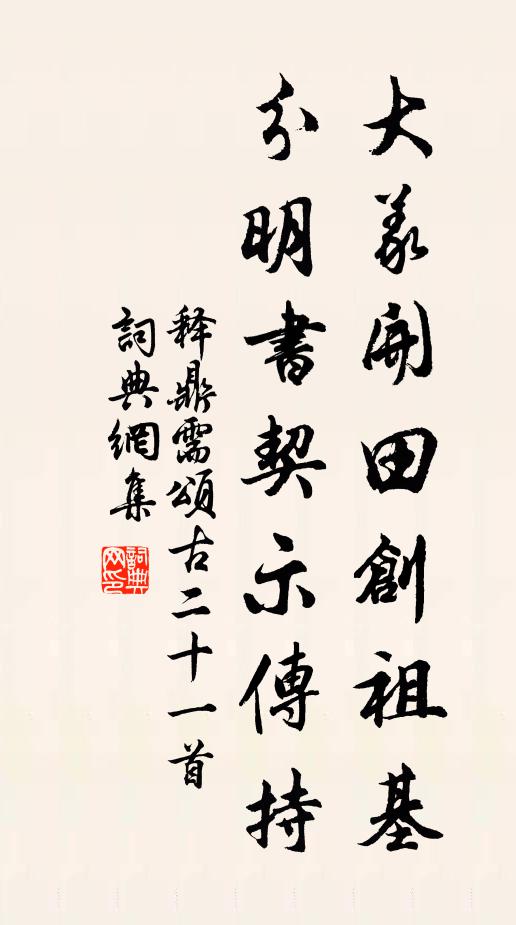 大義開田創祖基
分明書契示傳持
释鼎需頌古二十一首
詞典網集
詞典
网印